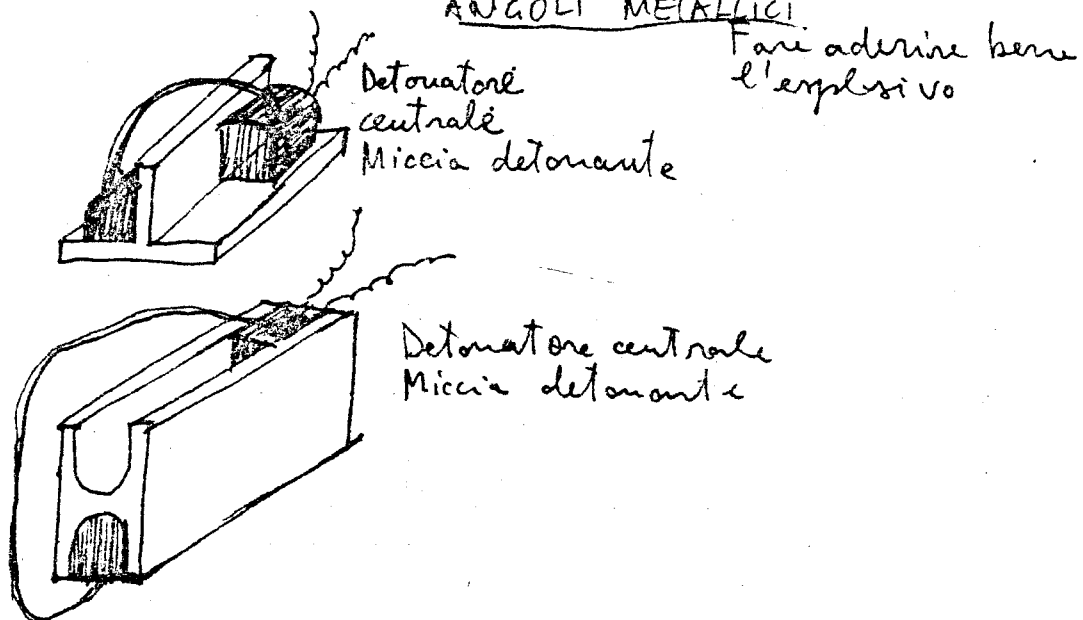 ANGOLI METALLICI
Fare aderire bene
l'esplosivo
Detonatore
centrale
Miccia detonante
Detonatore centrale
Miccia detonante